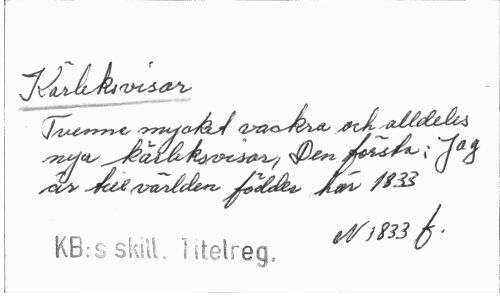 Kärleksvisor
Tvenne mycket vackra och alldeles
nya kärleksvisor, Den första: Jag
är till världen födder här 1833
N 1833 f.
KB:s skill. Titelreg.